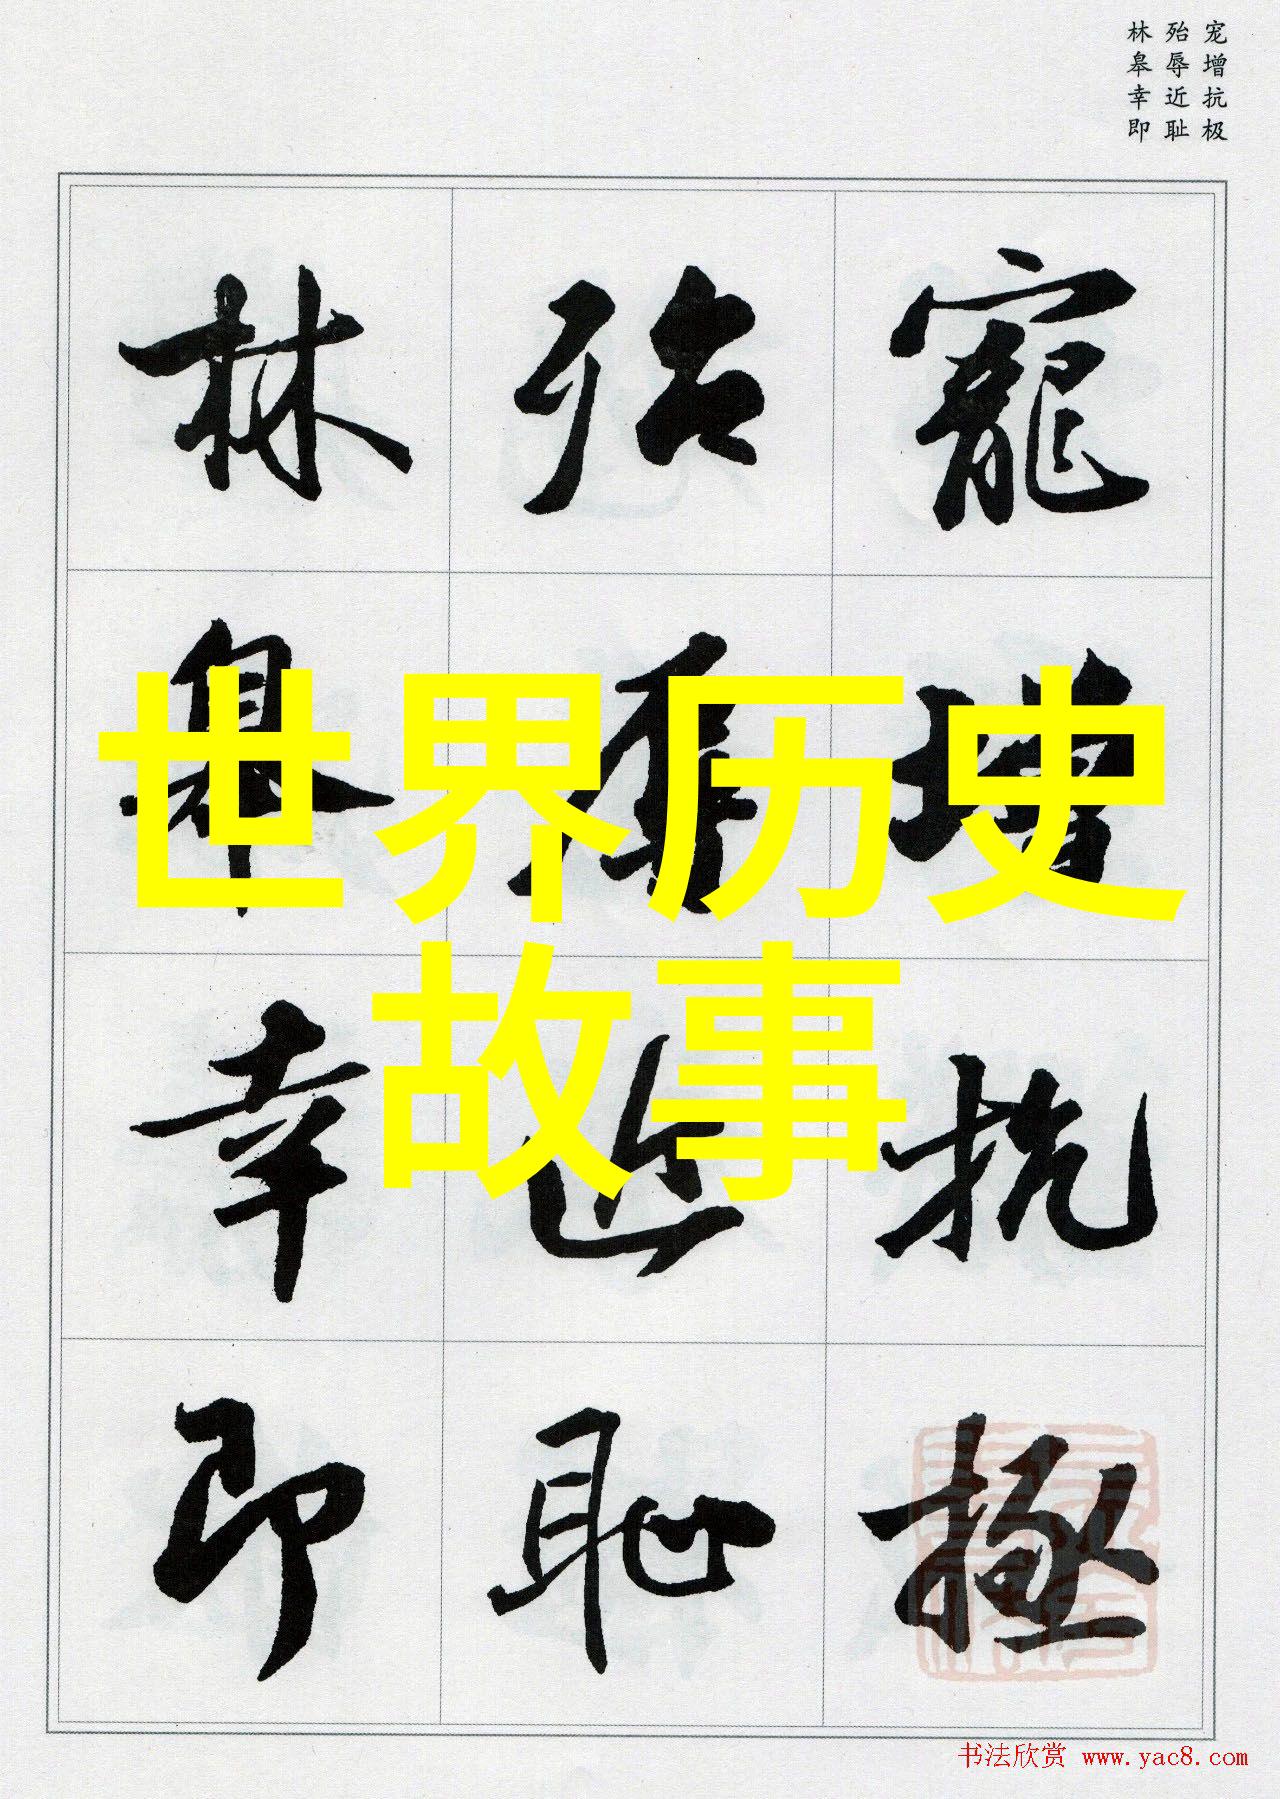 宠增抗极
殆辱近耻
林皋幸即
寵增抗極
殆辱近恥
林皋幸即
世界历史
故事
书法欣赏 www.yac8.com